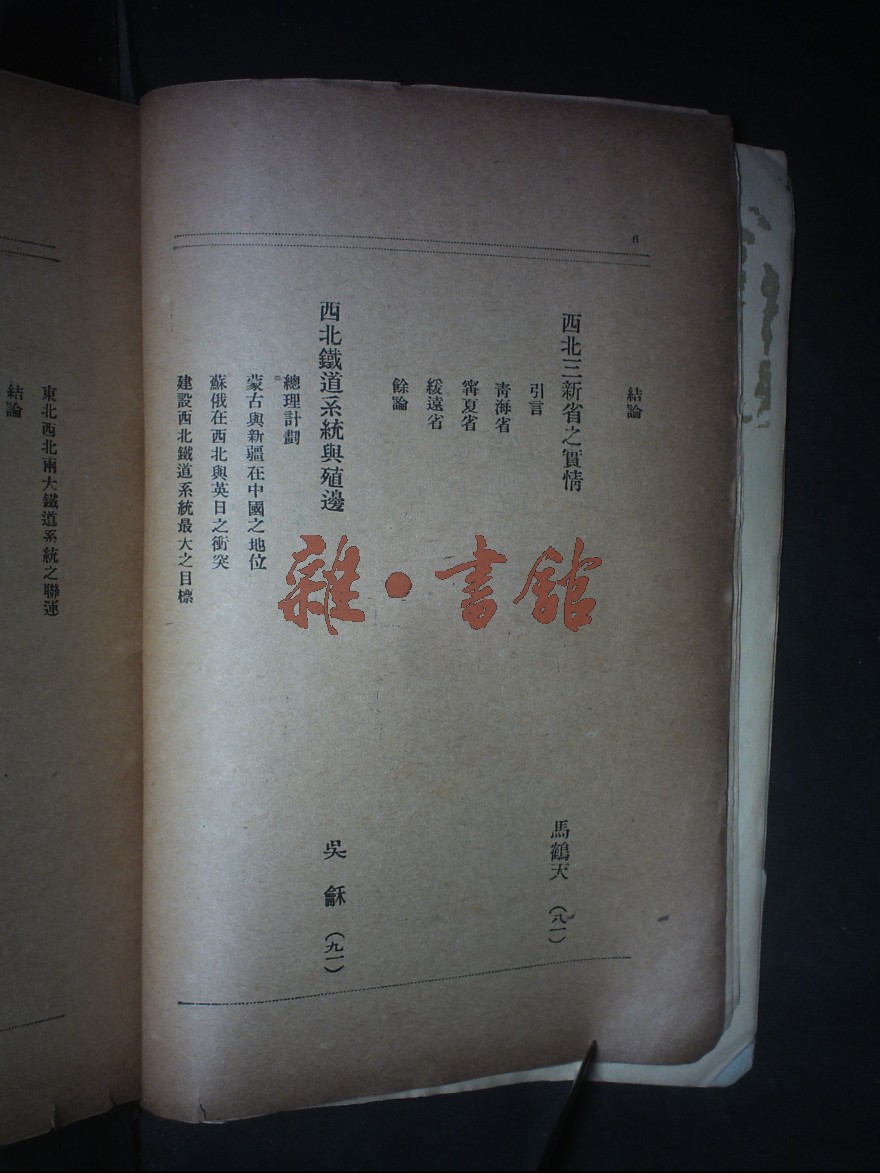 6
結論
西北三新省之實情 馬鶴天 (八一)
引言
青海省
寗夏省
綏遠省
餘論
西北鐵道系統與殖邊 吳龢 (九一)
總理計劃
蒙古與新疆在中國之地位
蘇俄在西北與英日之衝突
建設西北鐵道系統最大之目標
東北西北兩大鐵道系統之聯運
結論
雜·書館